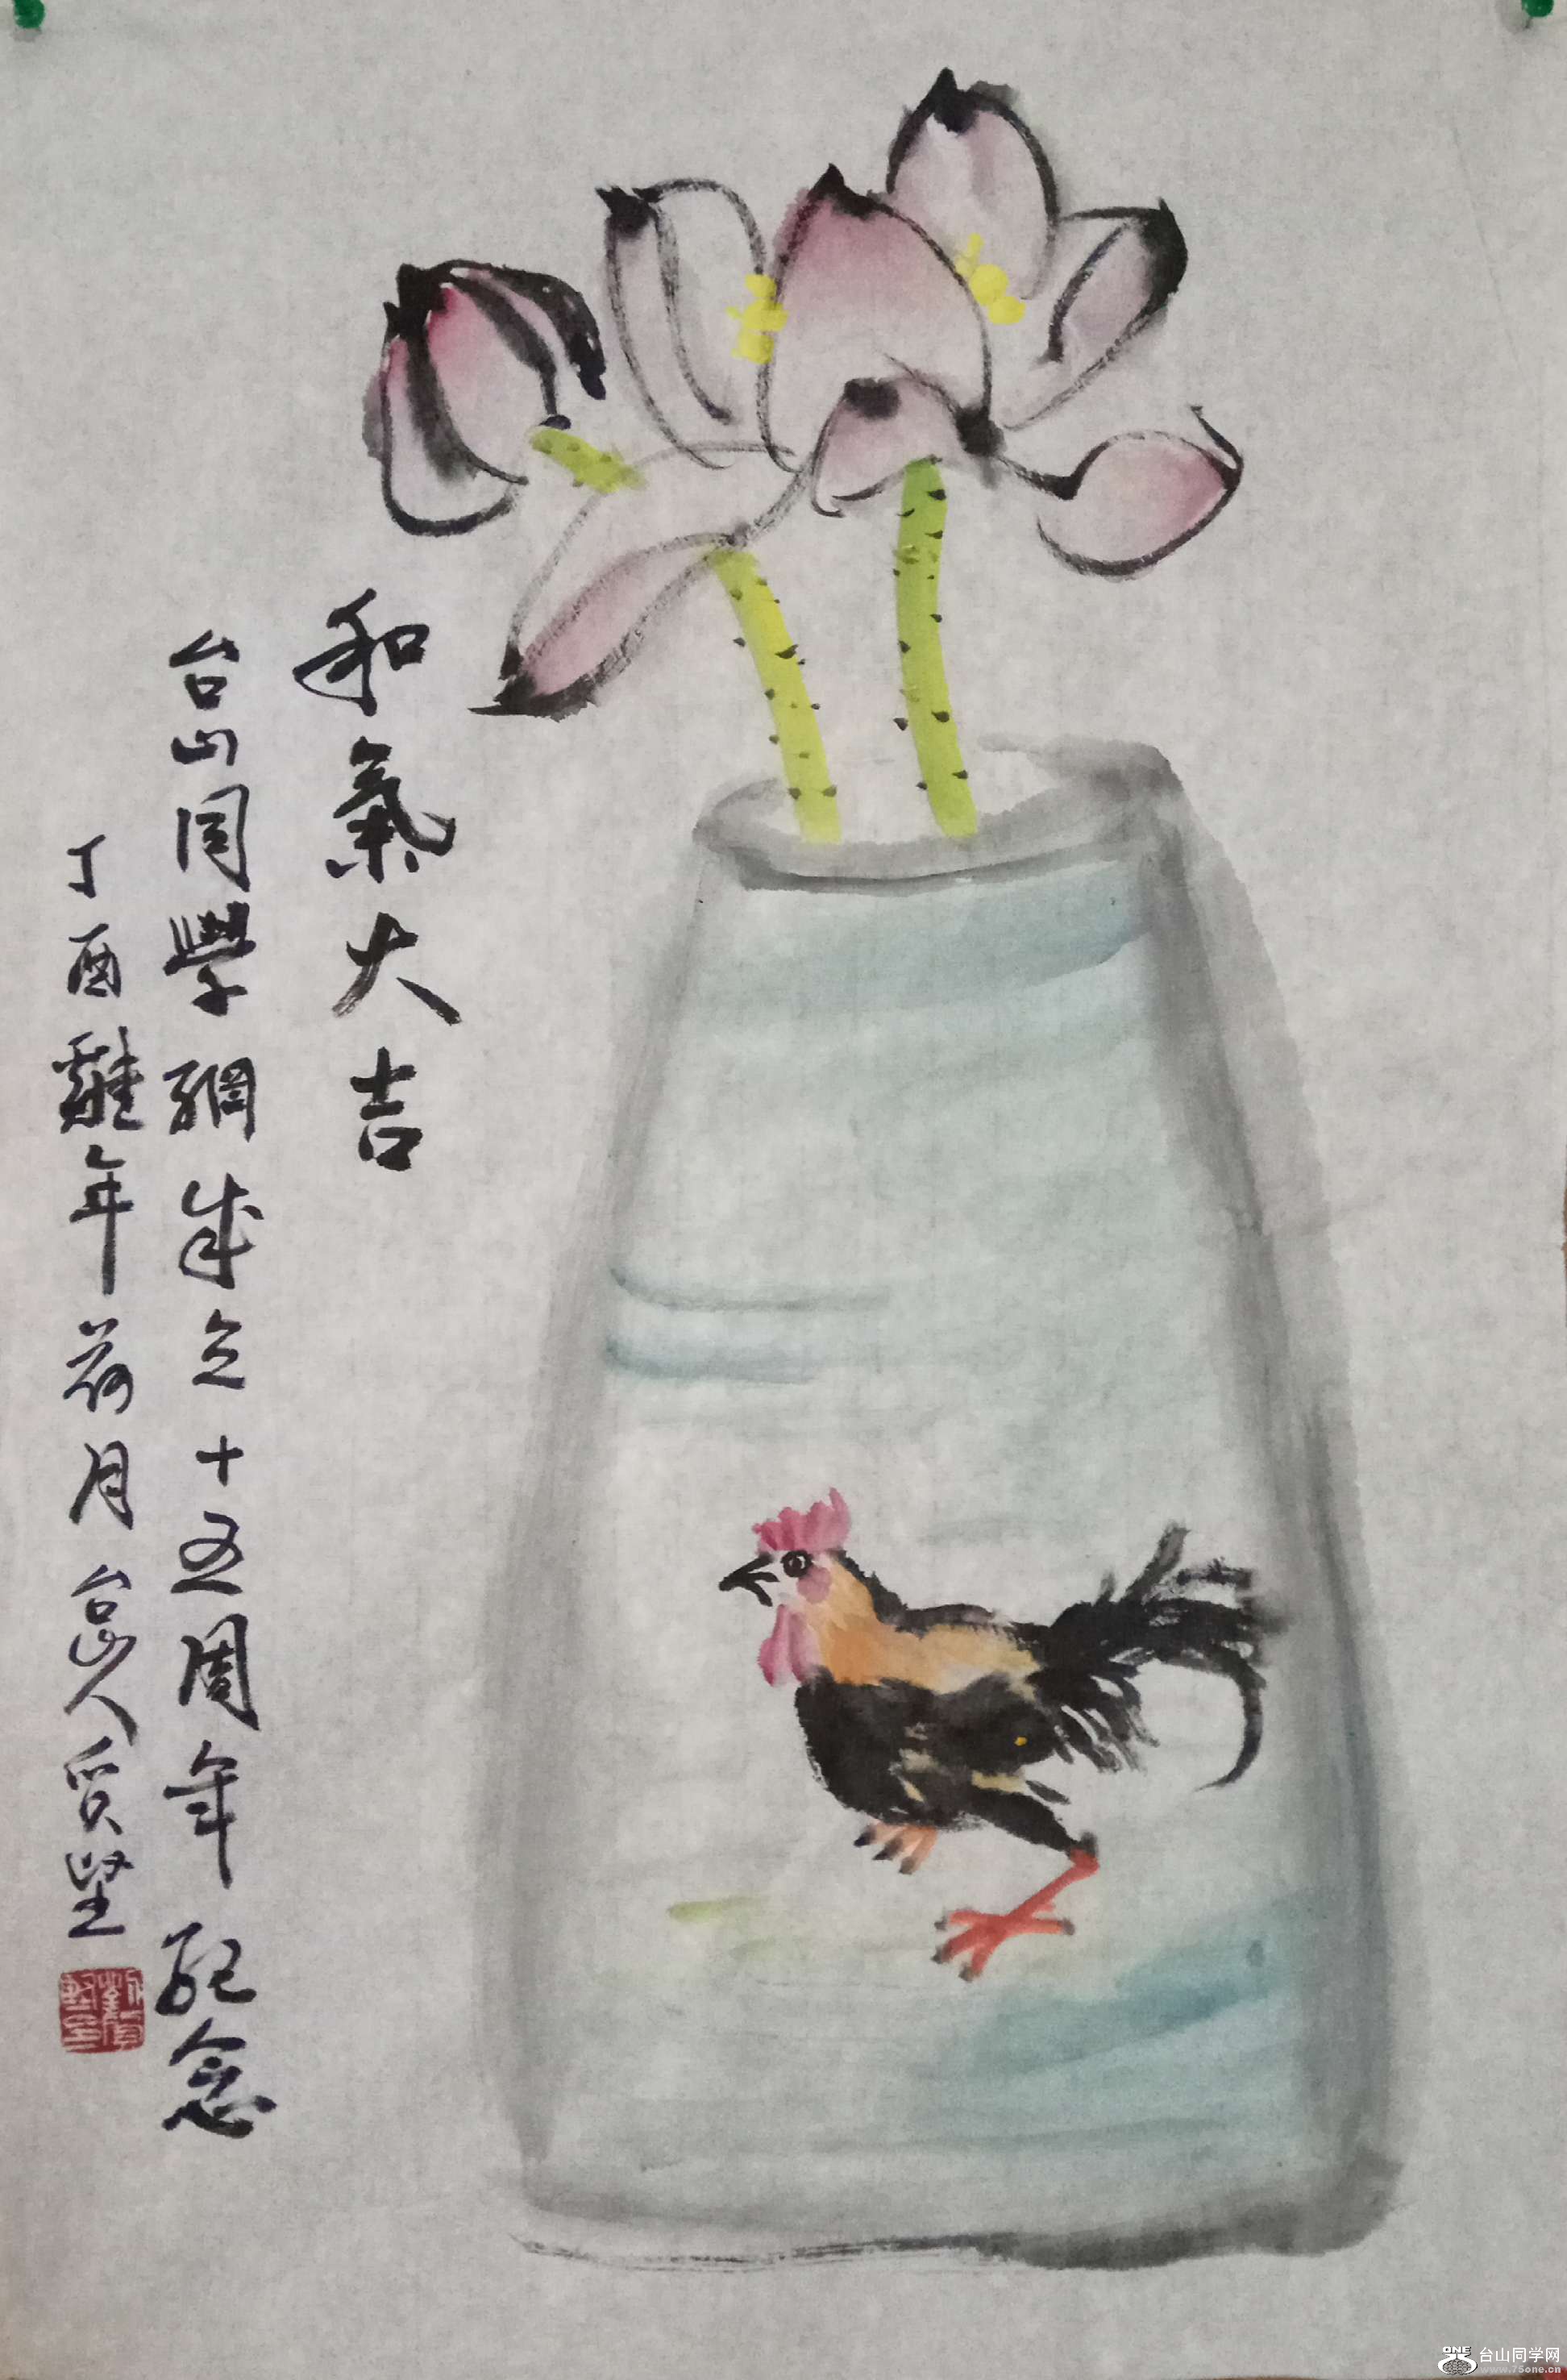 和氣大吉
台山同學網成立十五周年紀念
丁酉雞年荷月台山人質堅
ONE
台山同学网
www.75one.cn